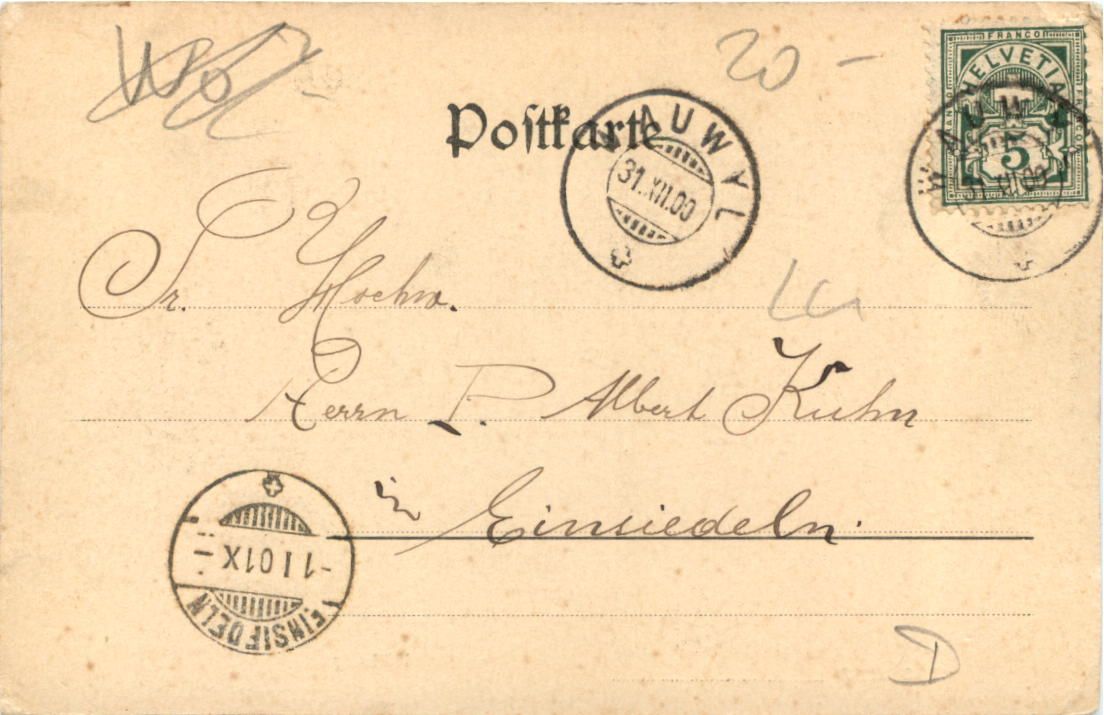 20 -
FRANCO
HELVETIA
5
Postkarte
AUWYL
31.XII.00
Sr. Hochw.
Herrn P. Albert Kuhn
in Einsiedeln.
-1 I 01 X-
EINSIEDELN
D